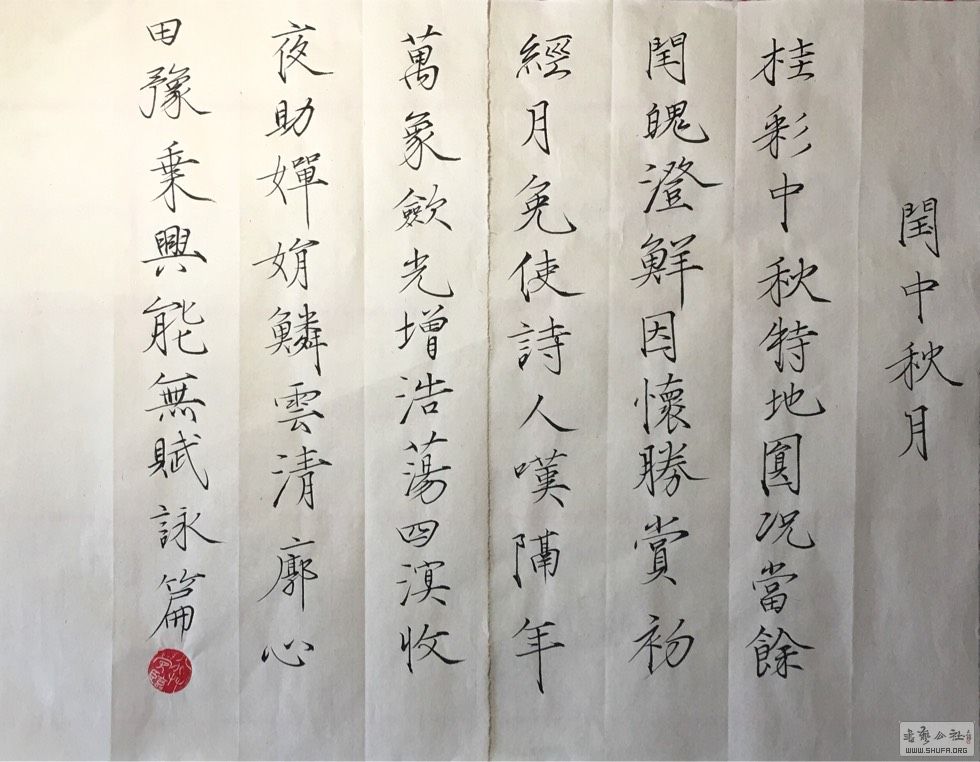 閏中秋月
桂彩中秋特地圓況當餘
閏魄澄鮮因懷勝賞初
經月免使詩人嘆隔年
萬象斂光增浩蕩四溟收
夜助嬋娟鱗雲清廓心
田豫乗興能無賦詠篇
書藝公社
WWW.SHUFA.ORG